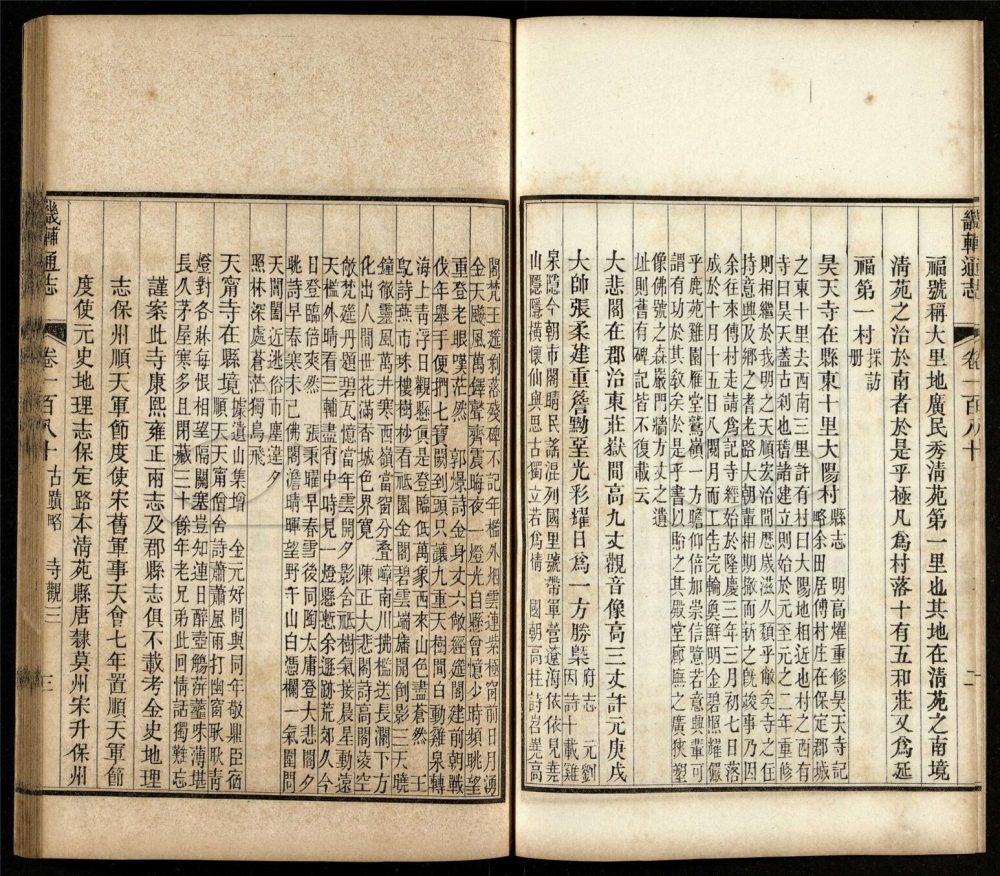 畿輔通志
卷一百八十
二
福號稱大里地廣民秀清苑第一里也其地在清苑之南境
清苑之治於南者於是乎極凡為村落十有五和莊又為延
福第一村採訪冊
昊天寺在縣東十里大陽村縣志 明高燿重修昊天寺記
略余田居傅村庄在保定郡城
之東十里去西南三里許有村曰大陽地相近也村之西有
寺曰昊天蓋古刹也稽諸建立則始於元至元之二年重修
則相繼於我明之天順宏治間歷歲滋久頹乎敝矣寺之住
持意興及鄉之耆老路大朝董相期撤而新之既竣事乃因
余往來傅村走請為記寺經始於隆慶三年三月初七日落
成於六年十月十五日八閱月而工告完輪奐鮮明金碧照耀儼
乎鹿苑雞園鷲嶺一方瞻仰倍加崇信意若意興輩可
謂有功於其教矣於是乎書以貽之其殿堂廊廡之廣狹塑
像佛號之森嚴門牆方丈之遺
址則舊有碑記皆不復載云
大悲閣在郡治東莊獄間高九丈觀音像高三丈許元庚戌
大帥張柔建重簷勤堊光彩耀日為一方勝槩府志 元劉
因詩十載雞
泉隱郡市閣晴民謠列國里號帶軍營遠海依依見堯
山隱隱橫懷仙與思古獨立若為情 國朝高桂詩岧嶤高
閣梵王遙剎落殘碑不記年檻外烟雲連紫極窗前日月湧
金天颸風萬鐸聲齊震晦夜一燈光自縣曾憶少時頻眺望
重登老眼嘆茫然 郭爌詩金身丈六敞經筵閣建前朝戰
伐年舉手便捫七寶闕到頭只讓九重天樹間白動雞泉轉
海上青浮日觀懸負是登臨低萬象西來山色盡蒼然 王
鳧詩燕市珠樓樹杪看祇園金閣碧雲端牖開倒影三天曉
鐘徹靈風萬井寒西嶺當窗分疊嶂南川拱檻送長瀾下方
化出人間世花滿香城色界寬 陳正大悲閣詩高閣淩空
敞梵筵丹題碧瓦憶當年雲開夕影含祇樹氣接晨星動遠
天檻外晴看三輔盡宵中時見一燈懸慙余遯跡荒郊久今
日登臨倍爽然 張秉曜早春雪後同陶太庸登大悲閣夕
眺詩早春寒未已佛閣澹晴暉望野千山白憑欄一氣圍問
天閶闔近逃俗市塵違夕
照林深處蒼茫獨鳥飛
天甯寺在縣境據遺山集增 金元好問與同年敬鼎臣宿
順天天甯僧舍詩蕭蕭風雨打幽窗耿耿青
燈對各牀每恨相望隔關塞豈知連日醉壺觴薺虀味薄堪
長久茅屋寒多且閉藏三十餘年老兄弟此回情話獨難忘
謹案此寺康熙雍正兩志及郡縣志俱不載考金史地理
志保州順天軍節度使宋舊軍事天會七年置順天軍節
度使元史地理志保定路本清苑縣唐隸莫州宋升保州
畿輔通志
卷一百八十 古蹟略 寺觀三
三